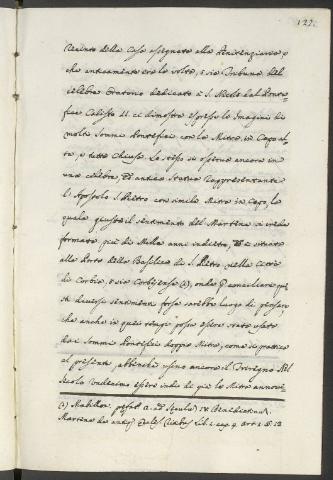 127.
Recinto della Casa assegnata alla Penitenziaria, o
che anticamente era la volta, o sia Tribuna del
celebre Oratorio dedicato a S. Nicola dal Ponte-
fice Calisto II. ci dimostra espresse le Imagini di
molti Sommi Pontefici con la Mitra in Capo al-
ta, e tutta chiusa. Lo stesso si osserva ancora in
una celebre, ed antica Statua rappresentante
l'Apostolo S. Pietro con simile Mitra in Capo, la
quale giusta il sentimento del Martene si vede
formata più di Mille anni indietro, ed è situata
alla Porta della Basilica di S. Pietro nella Città
di Corbia, o sia Corbejense (a), onde p conciliare que-
sti diversi sentimenti forse sarebbe luogo di pensare,
che anche in quei tempi possa essere stata usata
da i Sommi Pontefici doppia Mitra, come si pratica
al presente, abbenche usino ancora il Triregno. Nel
Secolo Undecimo essere indi di più la Mitra annove-
(a) Mabillon. prefat. a. ad Seculu IV. Benedictinu
Martene de antiq. Eccles. Ritibus lib. 1. cap. 4. art. 1. §. 12